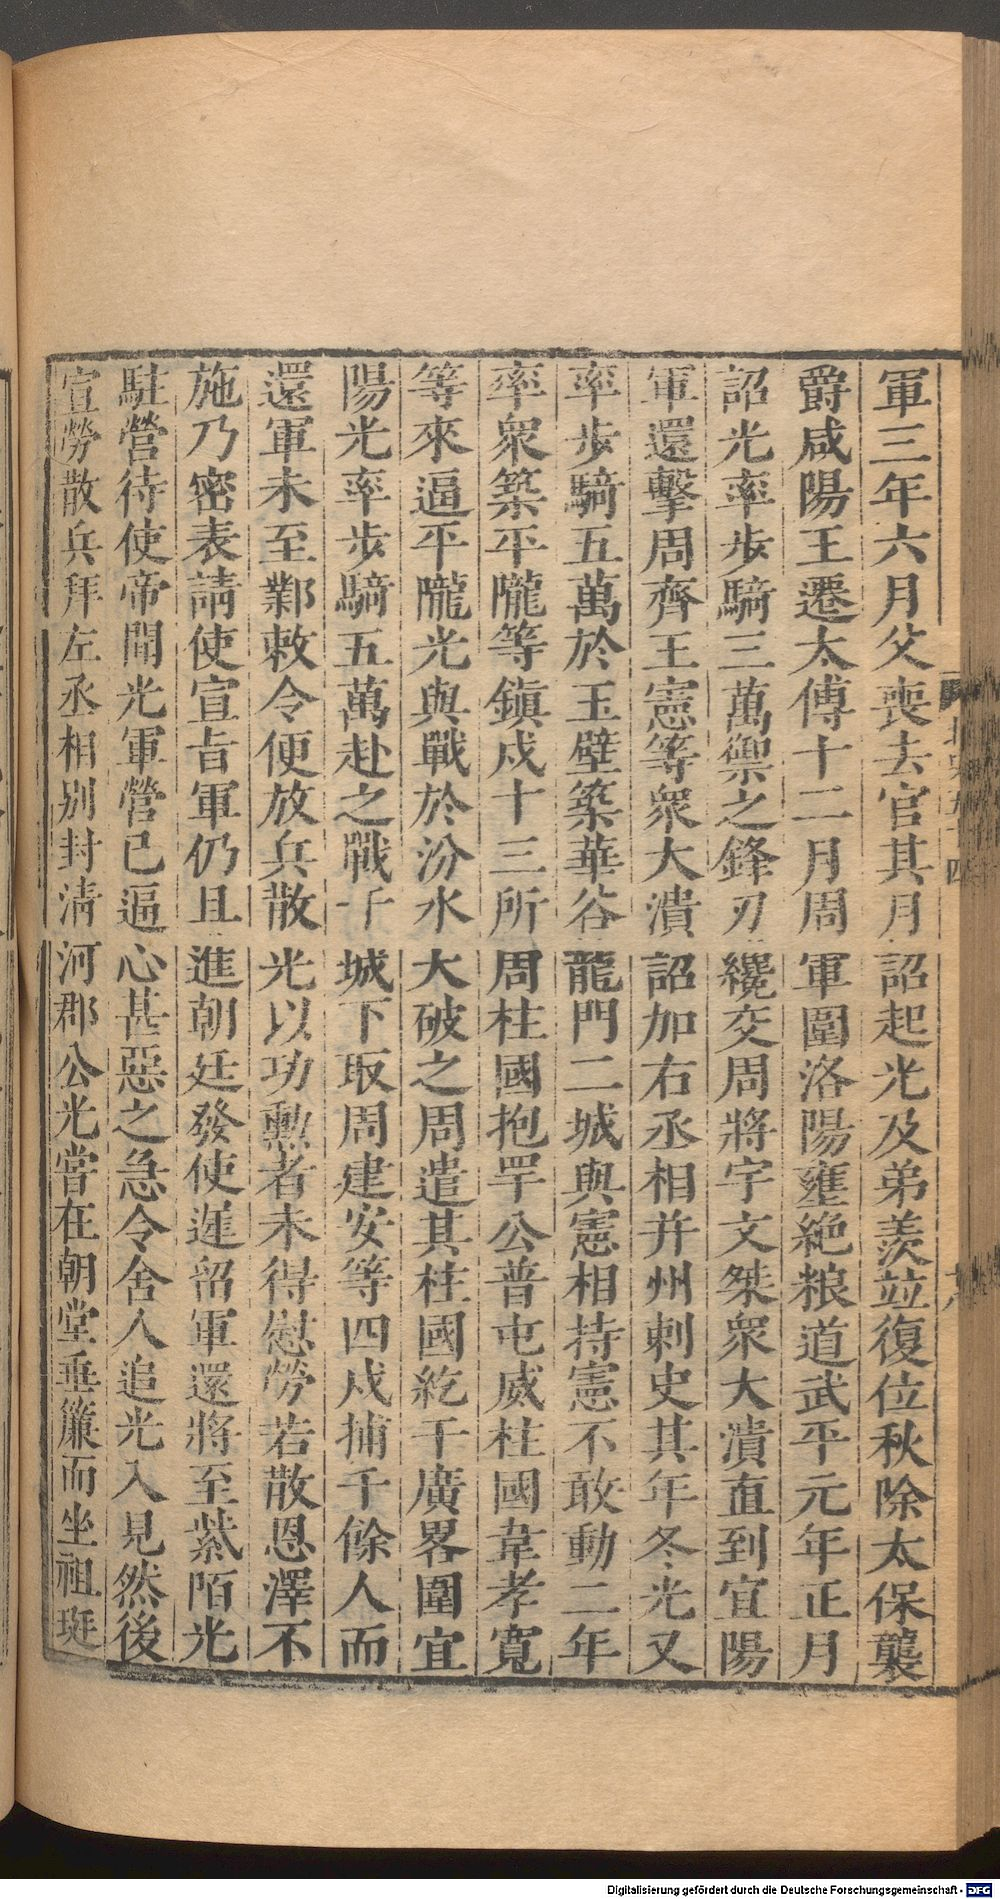 軍三年六月父喪去官其月詔起光及弟羨竝復位秋除太保襲
爵咸陽王遷太傅十二月周軍圍洛陽壅絶粮道武平元年正月
詔光率步騎三萬禦之鋒刃纔交周將宇文桀衆大潰直到宜陽
軍還擊周齊王憲等衆大潰詔加右丞相并州刺史其年冬光又
率步騎五萬於玉壁築華谷龍門二城與憲相持憲不敢動二年
率衆築平隴等鎮戍十三所周柱國抱罕公普屯威柱國韋孝寬
等來逼平隴光與戰於汾水大破之周遣其柱國紇干廣畧圍宜
陽光率步騎五萬赴之戰于城下取周建安等四戍捕千餘人而
還軍未至鄴敕令便放兵散光以功勲者未得慰勞若散恩澤不
施乃密表請使宣旨軍仍且進朝廷發使遲留軍還將至紫陌光
駐營待使帝聞光軍營已逼心甚惡之急令舍人追光入見然後
宣勞散兵拜左丞相別封清河郡公光嘗在朝堂垂簾而坐祖珽
Digitalisierung gefördert durch die Deutsche Forschungsgemeinschaft - DFG